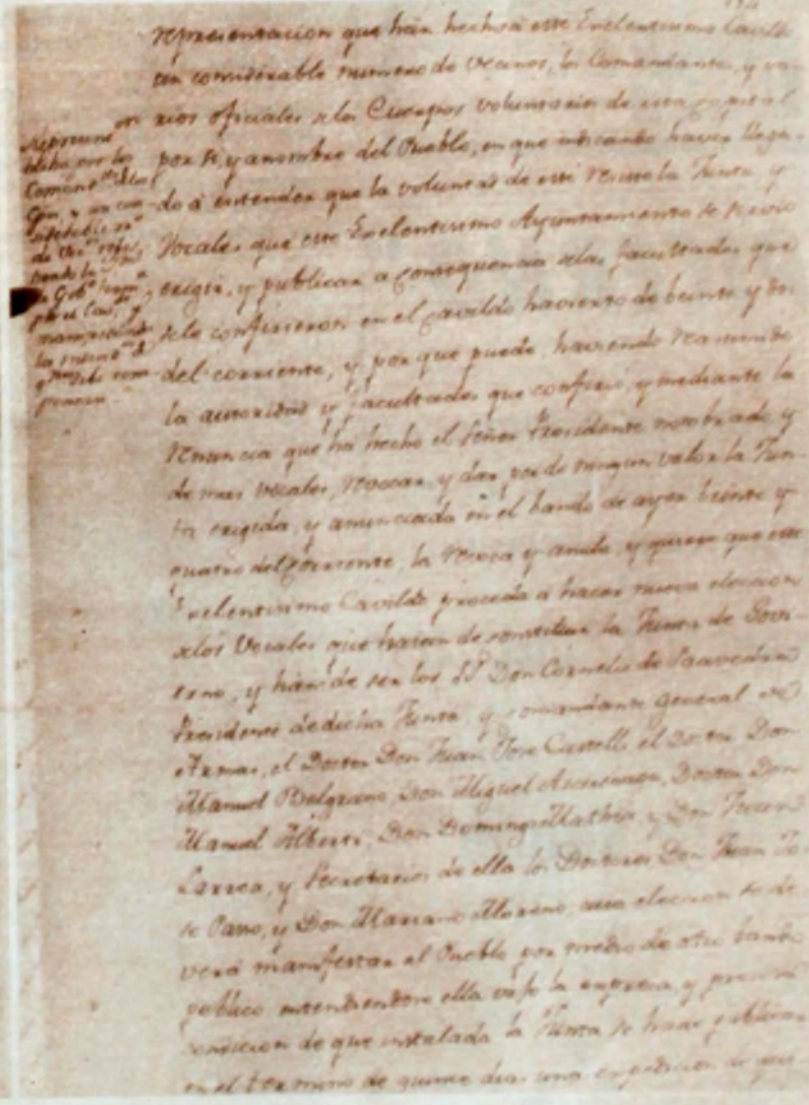 representacion que hán hecho á este Exelentisimo Cavildo
un considerable numero de vecinos, los Comandantes, y va-
rios oficiales de los Cuerpos voluntarios de esta Capital
por sí, y anombre del Pueblo, en que indicando haver llega-
do á entender que la voluntad de este resiste la Junta y
Vocales que este Exelentisimo Ayuntamiento se sirvio
erigir, y publicar a consequencia delas facultades que
sele confirieron en el Cavildo havierto de beinte y dos
del corriente, y por que puede, haviendo reasumido
la autoridad y facultades que confirió, y mediante la
renuncia que há hecho el Señor Presidente nombrado y
demas vocales, revocar, y dar por de ningun valor la Jun-
ta erigida, y anunciada en el bando de ayer beinte y
quatro del Corriente, la revoca y anula, y quiere que este
Exelentisimo Cavildo proceda á hacer nueva eleccion
delos Vocales que haian de constituir la Junta de Govi-
erno, y hán de ser los SS. Don Cornelio de Saavedra
Presidente dedicha Junta, y comandante general de
Armas, el Doctor Don Juan Jose Castelli, el Doctor Don
Manuel Belgrano, Don Miguel Ascuenaga, Doctor Don
Manuel Alberti, Don Domingo Mathéu, y Don Juan
Larrea, y Secretarios de ella los Doctores Don Juan Jo-
se Passo, y Don Mariano Moreno, cuia eleccion se de-
verá manifestar al Pueblo por medio de otro bando
publico entendiendose ella vajo la expresa, y precisa
condicion de que instalada la Junta se ha de publicar
en el termino de quince dias una expedicion de